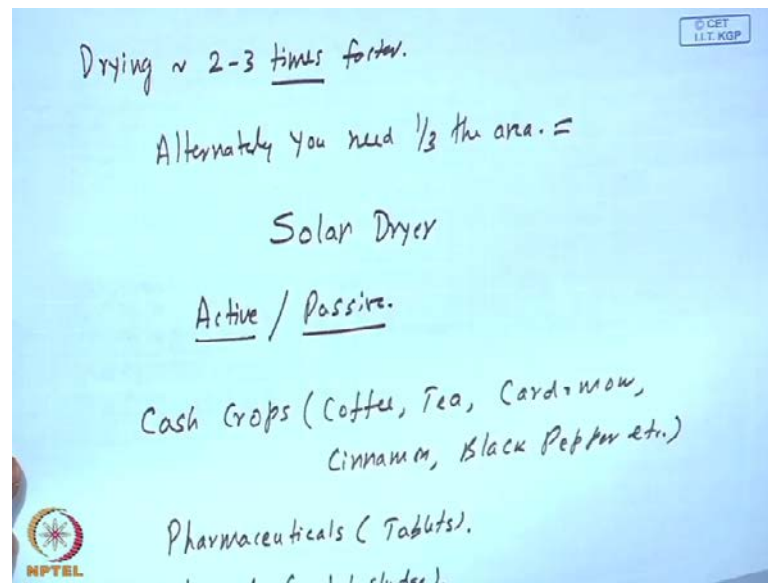 © CET
I.I.T. KGP
Drying ~ 2-3 times faster.
Alternately you need 1/3 the area. =
Solar Dryer
Active / Passive.
Cash Crops (Coffee, Tea, Cardamom,
Cinnamon, Black Pepper etc.)
Pharmaceuticals (Tablets).
NPTEL